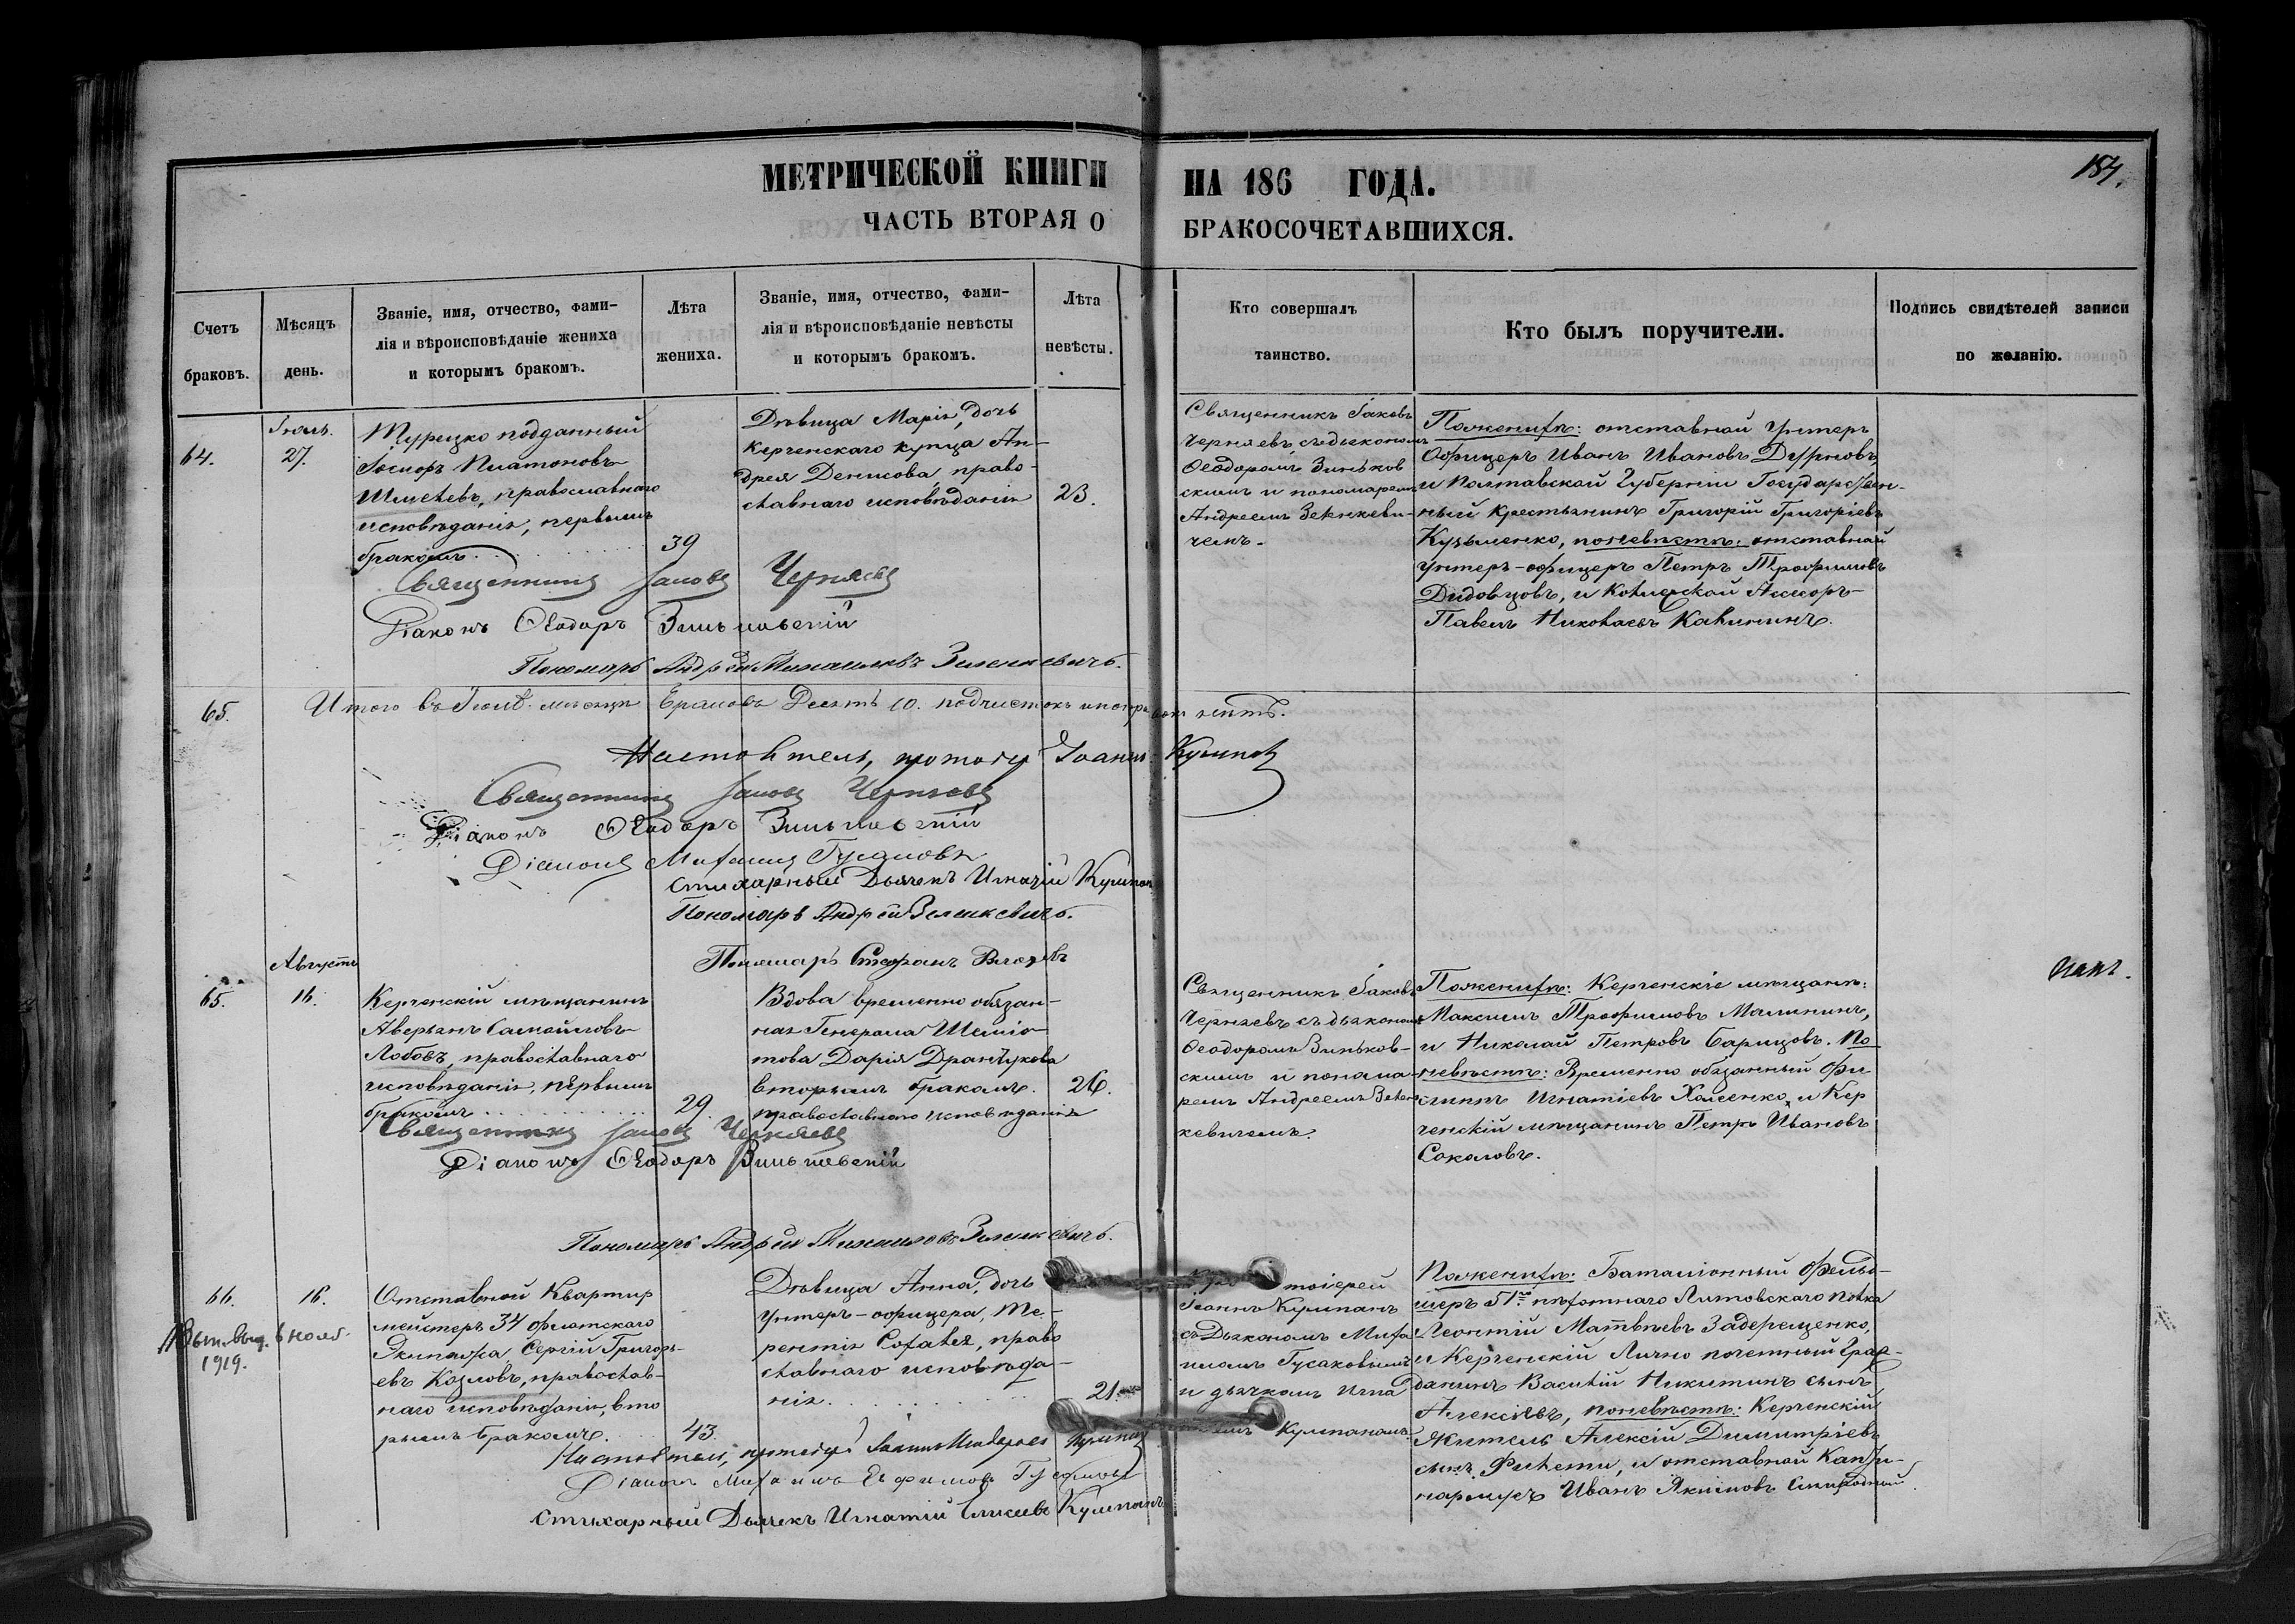 МЕТРИЧЕСКОЙ КНИГИ НА 186 ГОДА.
184.
ЧАСТЬ ВТОРАЯ О БРАКОСОЧЕТАВШИХСЯ.
Счетъ
браковъ.
Мѣсяцъ
день.
Званіе, имя, отчество, фами-
лія и вѣроисповѣданіе жениха
и которымъ бракомъ.
Лѣта
жениха.
Званіе, имя, отчество, фами-
лія и вѣроисповѣданіе невѣсты
и которымъ бракомъ.
Лѣта
невѣсты.
Кто совершалъ
таинство.
Кто былъ поручители.
Подпись свидѣтелей записи
по желанію.
64.
Іюль.
27.
Турецко подданный
Іосифъ Платоновъ
православнаго
исповѣданія, первымъ
бракомъ
39
Дѣвица Марія, дочь
Керченскаго купца Ан-
дрея Денисова, право-
славнаго исповѣданія
23.
Священникъ Іаковъ
Черняевъ, съ дьякономъ
Ѳеодоромъ Зиньков
скимъ и пономаремъ
Андреемъ Зеленкеви-
чемъ.
По женихѣ: отставной Унтеръ
Офицеръ Иванъ Ивановъ
и Полтавской Губерніи Государствен-
ный крестьянинъ Григорій Григоріевъ
Кузьменко, по невѣстѣ: отставной
Унтеръ-офицеръ Петръ Трофимовъ
Дидовцовъ, и Колежской Асессоръ
Павелъ Николаевъ Калининъ.
Священникъ Іаковъ Черняевъ
Діаконъ Ѳеодоръ Зиньковскій
Пономарь Андрей Михаиловъ Зеленкевичъ.
65.
Итого въ Іюлѣ мѣсяцѣ браковъ Десять 10. подчистокъ и поправокъ нѣтъ.
Настоятель, протоіерей Іоаннъ Кулпанъ
Священникъ Іаковъ Черняевъ
Діаконъ Ѳеодоръ Зиньковскій
Діаконъ Михаилъ Гусаковъ
Стихарный Дьячекъ Игнатій Кулпанъ
Пономарь Андрей Зеленкевичъ.
Пономарь Стефанъ
Августъ
65.
16.
Керченскій мѣщанинъ
Аверьянъ Самойловъ
Лобовъ, православнаго
исповѣданія, первымъ
бракомъ
29.
Вдова временно обязан-
ная Генерала Шеміо
това Дарія Дранчукова
вторымъ бракомъ.
православнаго исповѣданія
26.
Священникъ Іаковъ
Черняевъ съ дьякономъ
Ѳеодоромъ Зиньков-
скимъ и понома-
ремъ Андреемъ Зелен
кевичемъ.
По женихѣ: Керченскіе мѣщане:
Максимъ Трофимовъ Малининъ,
и Николай Петровъ Барицовъ. По
невѣстѣ: Временно обязанный Фи
липпъ Игнатіевъ Хоменко, и Кер
ченскій мѣщанинъ Петръ Ивановъ
Соколовъ.
Священникъ Іаковъ Черняевъ
Діаконъ Ѳеодоръ Зиньковскій
Пономарь Андрей Михаиловъ Зеленкевичъ.
66.
16.
1919.
Отставной Квартир
мейстеръ 34 флотскаго
Экипажа Сергій Григорь-
евъ Козловъ, православ-
наго исповѣданія, вто
рымъ бракомъ.
43.
Дѣвица Анна, дочь
Унтеръ-офицера, Те-
рентія Согалея, право
славнаго исповѣда-
нія.
21.
Протоіерей
Іоаннъ Кулпанъ
съ Дьякономъ Миха
иломъ Гусаковымъ
и дьячкомъ Игна
тіемъ Кулпаномъ.
По женихѣ: Баталіонный фельд-
шеръ 51го пѣхотнаго Литовскаго полка
Леонтій Матвѣевъ Задерещенко,
и Керченскій Лично почетный Граж-
данинъ Василій Никитинъ сынъ
Алексѣевъ, по невѣстѣ: Керченскій
житель Алексій Димитріевъ
сынъ Филети, и отставной Капти-
нармусъ Иванъ Якимовъ
Настоятель, протоіерей Іоаннъ Кулпанъ
Діаконъ Михаилъ Ефимовъ Гусаковъ
Стихарный Дьячекъ Игнатій Елисеевъ Кулпанъ